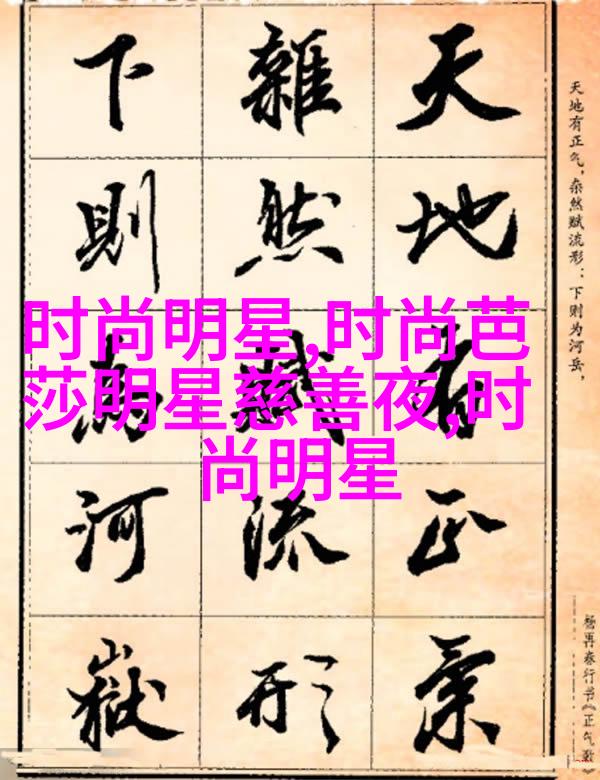 时尚明星,时尚芭
莎明星慈善夜,时
尚明星
天地有正气，杂然赋流形：下则为河岳，
天地有正氣
雜然賦流形
下則為河嶽
杨再春行书《正气歌》